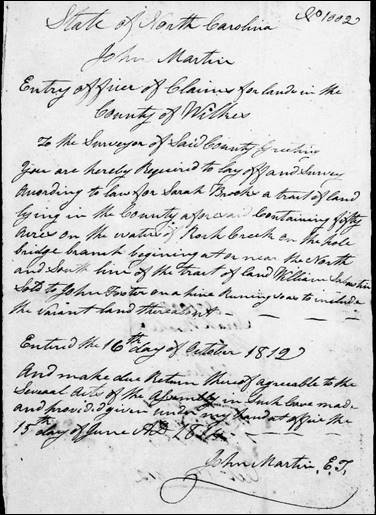 No 1002
State of North Carolina
John Martin
Entry officer of Claims for lands in the
County of Wilkes
To the Surveyor of Said County Greeting
You are hereby Required to lay off and Survey
According to law for Sarah Brooks a tract of land
lying in the County aforesaid Containing fifty
Acres on the waters of Rock Creek on the hole
bridge branch begining at or near the North
and South line of the tract of land William
Sold to John Foster on a line Runing so as to include
the vacant land thereon
Entred the 16th day of October 1812
And make due Return thereof agreeable to the
Several Acts of the Assembly in Such Case made
and provided given under my hand at office the
15th day of June AD
John Martin, E.T,